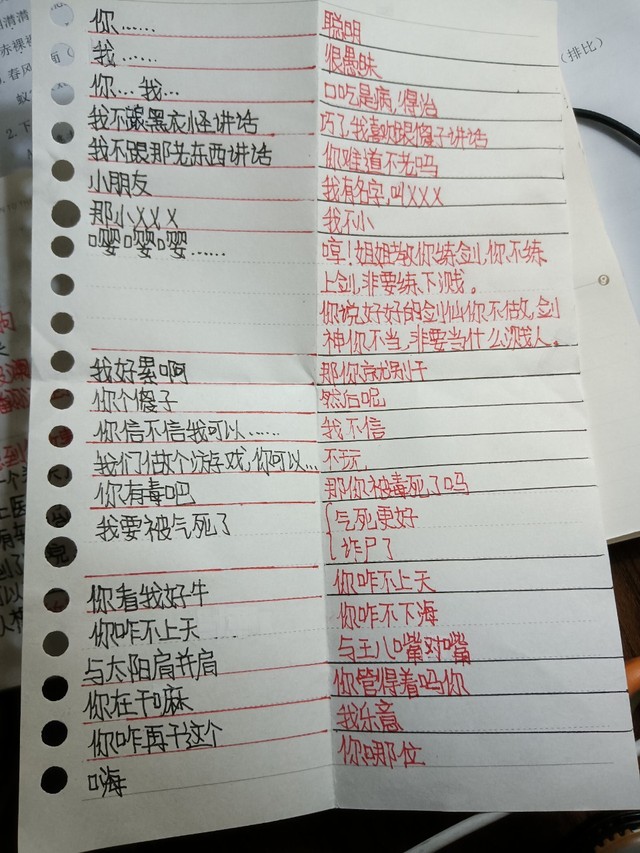 你……  聪明
我……  很愚昧
你…我…  口吃是病,得治
我不跟黑衣怪讲话  巧了我喜欢跟傻子讲话
我不跟那老东西讲话  你难道不老吗
小朋友  我有名字,叫XXX
那小XXX  我不小
嘤嘤嘤……  哼!姐姐教你练剑,你不练
上剑,非要练下贱。
你说,好好的剑仙你不做,剑
神你不当,非要当什么贱人。
我好累啊  那你就别干
你个傻子  然后呢
你信不信我可以……  我不信
我们做个游戏,你可以…  不玩
你有毒吧  那你被毒死了吗
我要被气死了  气死更好
诈尸了
你看我好牛  你咋不上天
你咋不上天  你咋不下海
与太阳肩并肩  与王八嘴对嘴
你在干嘛  你管得着吗你
你咋再干这个  我乐意
嗨  你哪位
(排比)